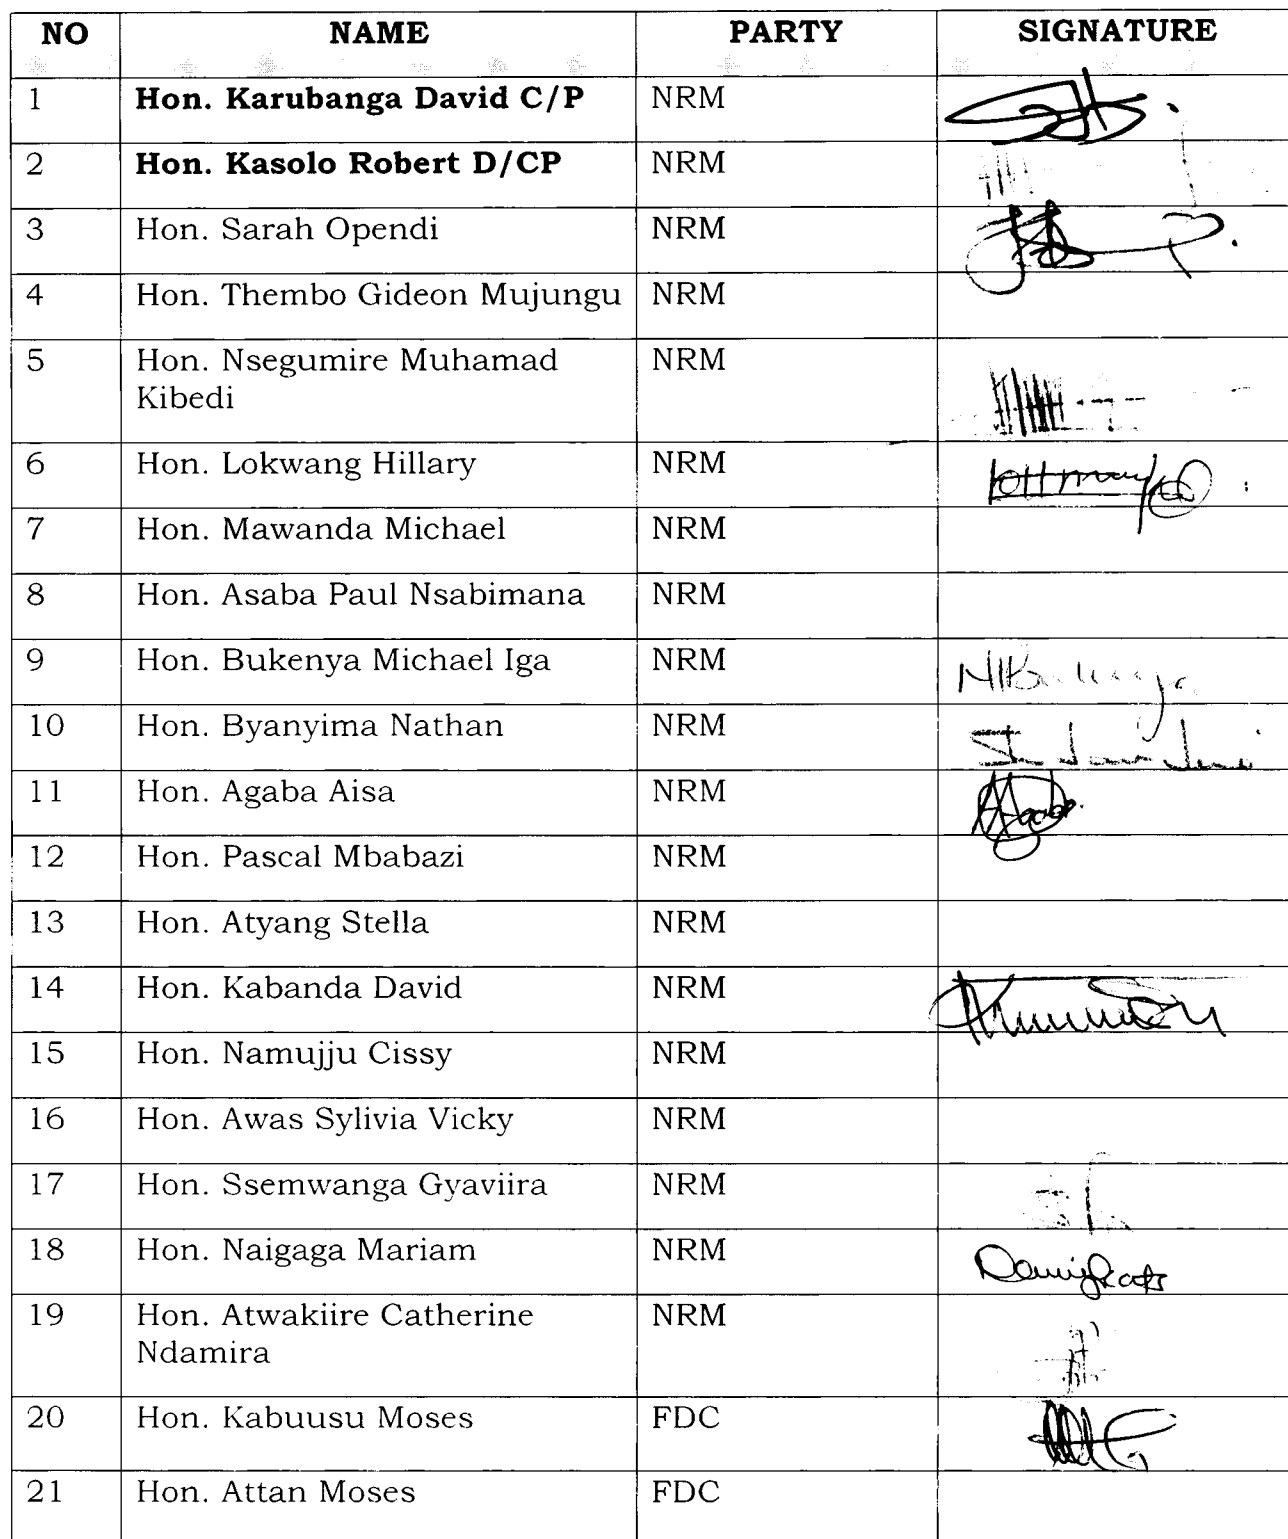 NO NAME PARTY SIGNATURE
1 Hon. Karubanga David C/P NRM
2 Hon. Kasolo Robert D/CP NRM
3 Hon. Sarah Opendi NRM
4 Hon. Thembo Gideon Mujungu NRM
5 Hon. Nsegumire Muhamad NRM
Kibedi
6 Hon. Lokwang Hillary NRM
7 Hon. Mawanda Michael NRM
8 Hon. Asaba Paul Nsabimana NRM
9 Hon. Bukenya Michael Iga NRM
10 Hon. Byanyima Nathan NRM
11 Hon. Agaba Aisa NRM
12 Hon. Pascal Mbabazi NRM
13 Hon. Atyang Stella NRM
14 Hon. Kabanda David NRM
15 Hon. Namujju Cissy NRM
16 Hon. Awas Sylivia Vicky NRM
17 Hon. Ssemwanga Gyaviira NRM
18 Hon. Naigaga Mariam NRM
19 Hon. Atwakiire Catherine NRM
Ndamira
20 Hon. Kabuusu Moses FDC
21 Hon. Attan Moses FDC